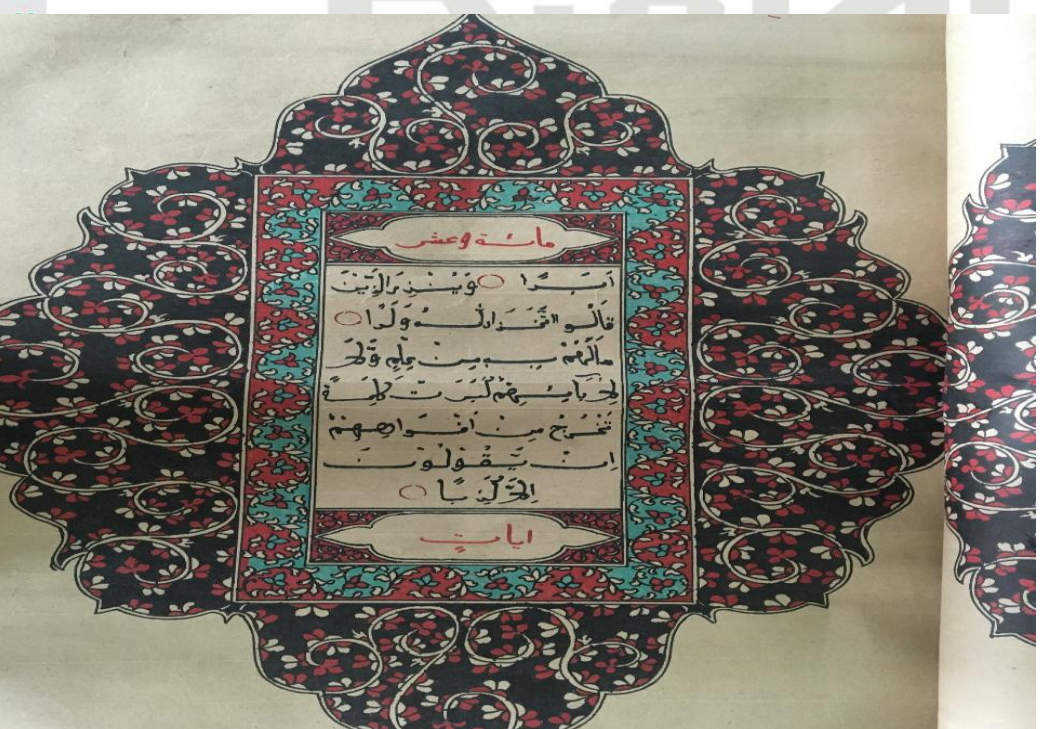 مائة وعشر
اَبَدًا ○ وَيُنْذِرَ الَّذِيْنَ
قَالُوا اتَّخَذَ اللّٰهُ وَلَدًا ○
مَالَهُمْ بِهِ مِنْ عِلْمٍ وَّلَا
لِاٰبَائِهِمْ كَبُرَتْ كَلِمَةً
تَخْرُجُ مِنْ اَفْوَاهِهِمْ
اِنْ يَّقُوْلُوْنَ
اِلَّا كَذِبًا ○
ايات